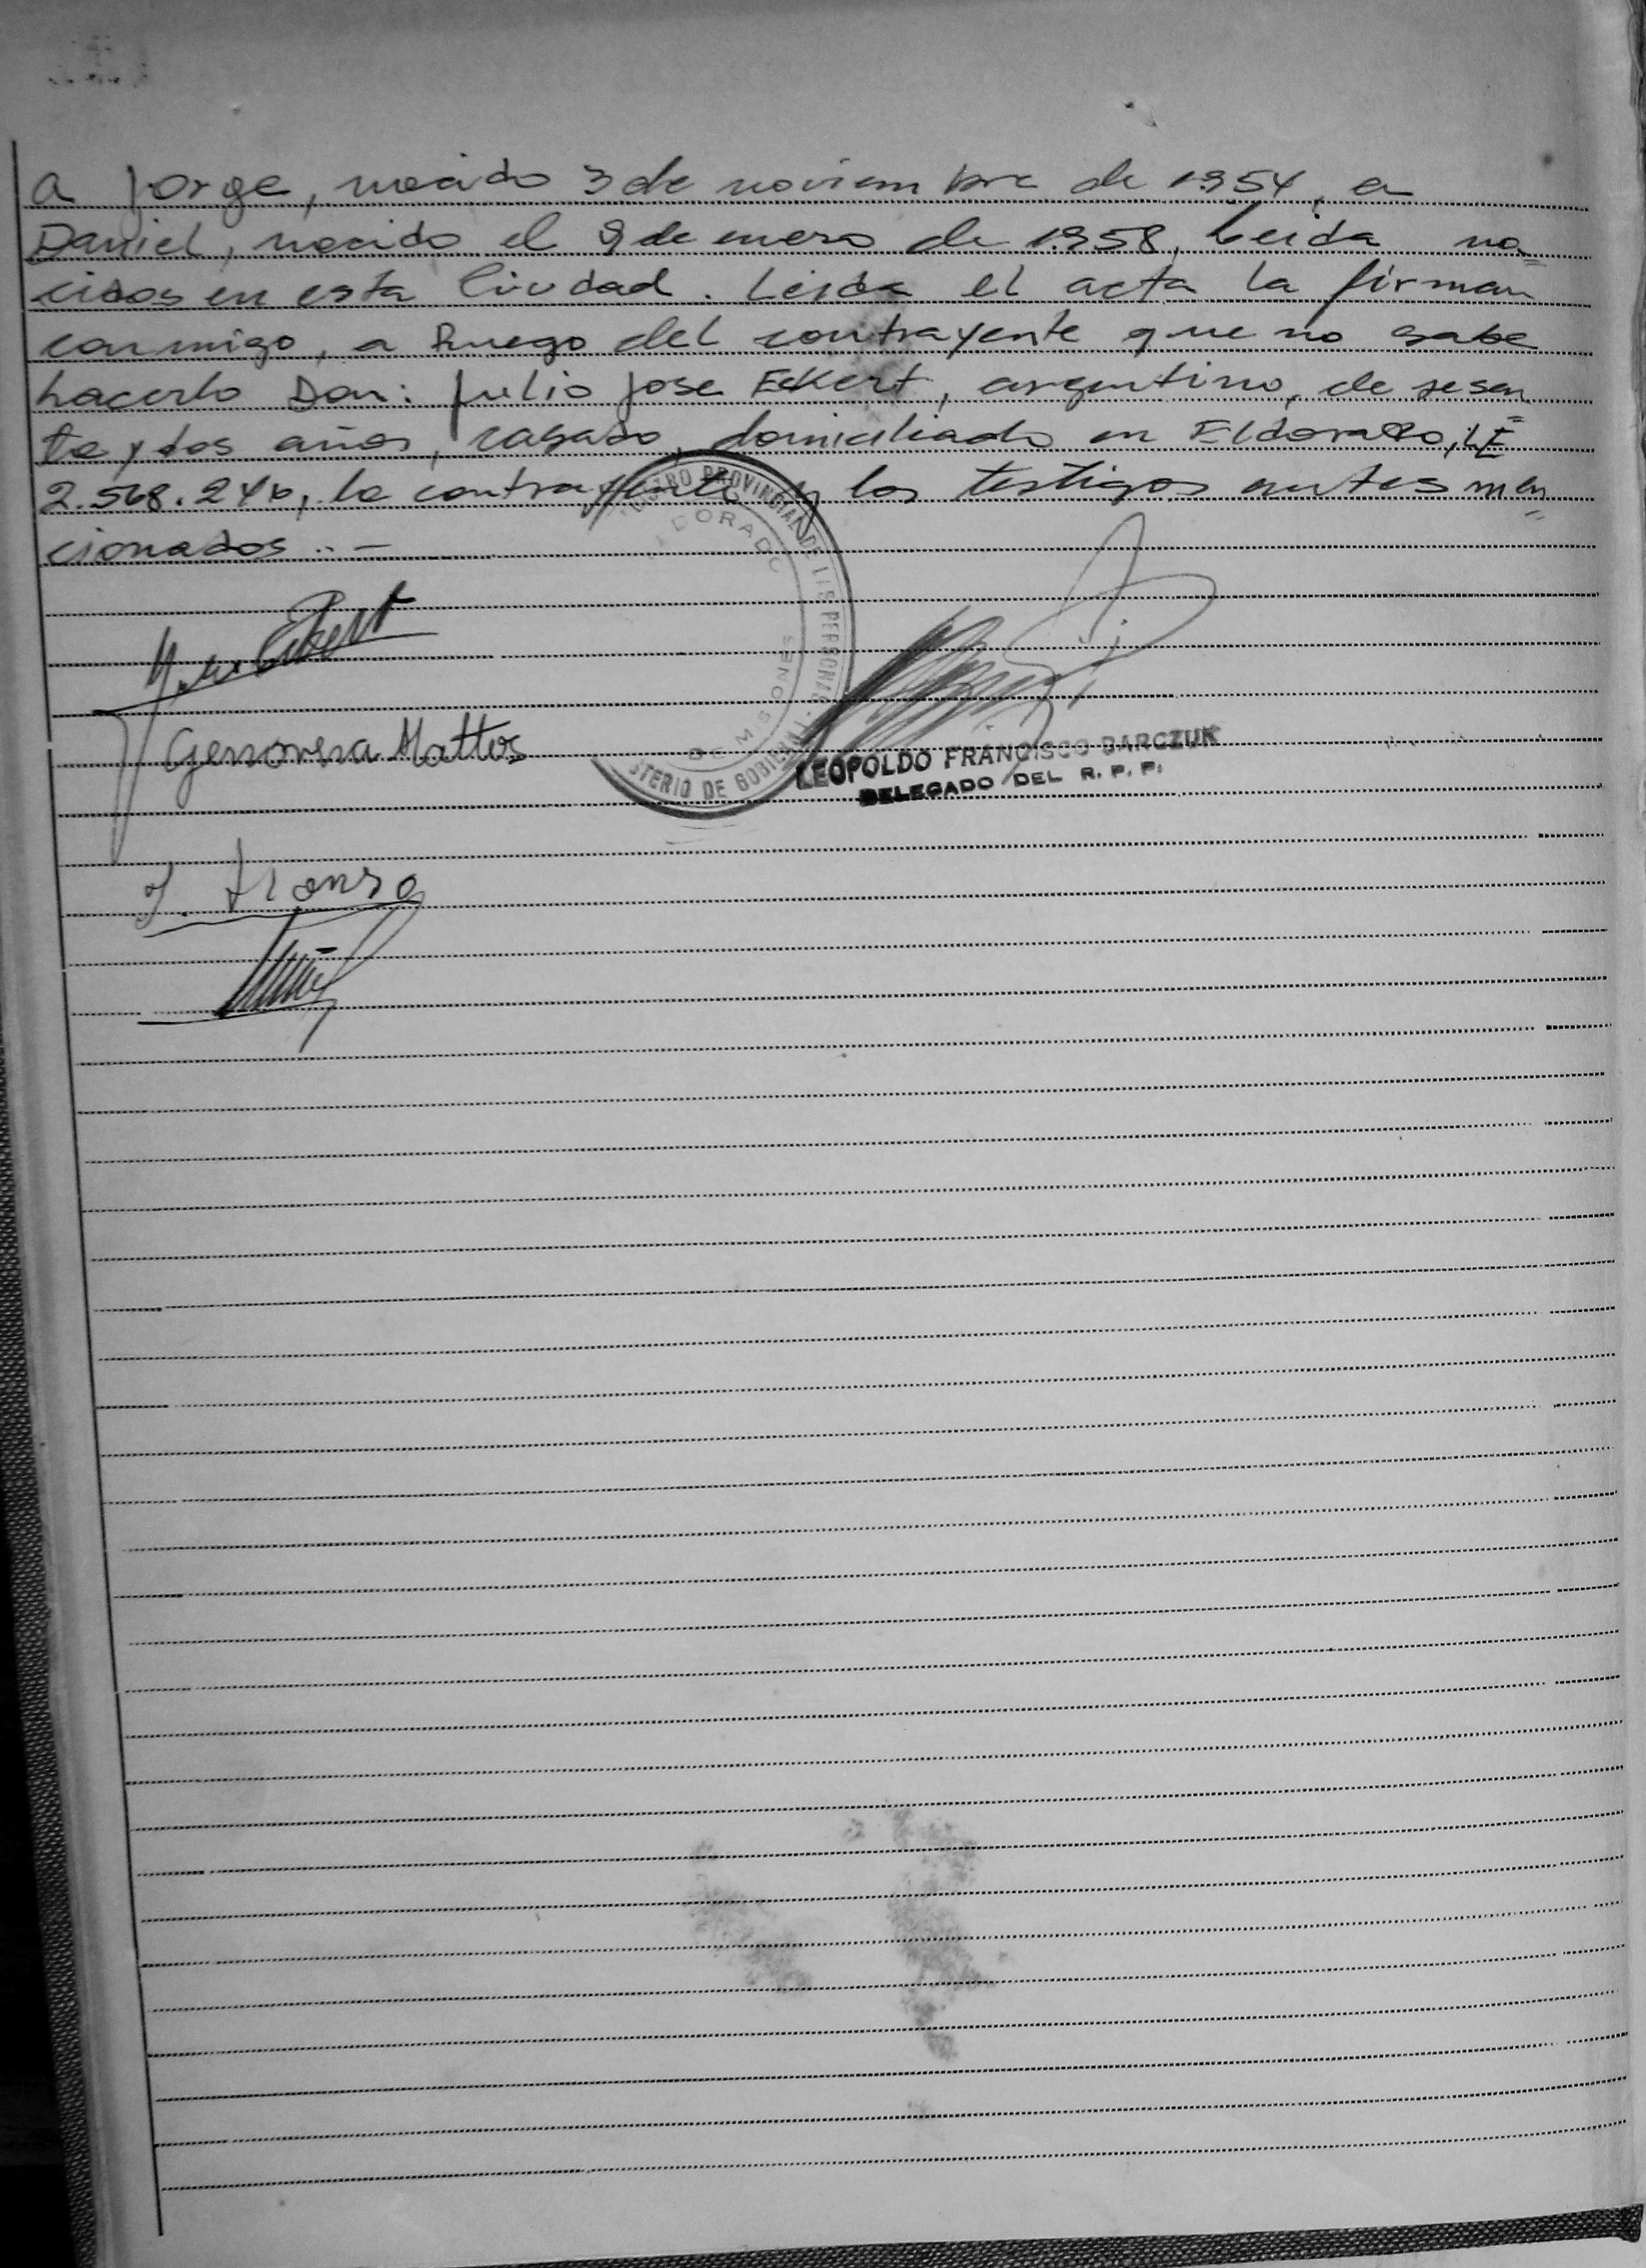 a Jorge, nacido 3 de noviembre de 1954, a
Daniel, nacido el 9 de enero de 1958, Leida na=
cidos en esta Ciudad. Leida el acta la firman
conmigo, a Ruego del contrayente que no sabe
hacerlo Don: Julio Jose Eckert, argentino, de sesen=
ta y dos años, casado, domiciliado en Eldorado, LE
2.568.246, la contrayente y los testigos antes men=
cionados..-
REGISTRO PROVINCIAL DE LAS PERSONAS
ELDORADO
MISIONES
MINISTERIO DE GOBIERNO
Eckert
Genoveva Mattos
LEOPOLDO FRANCISCO BARCZUK
DELEGADO DEL R. P. P.
J. Alonso